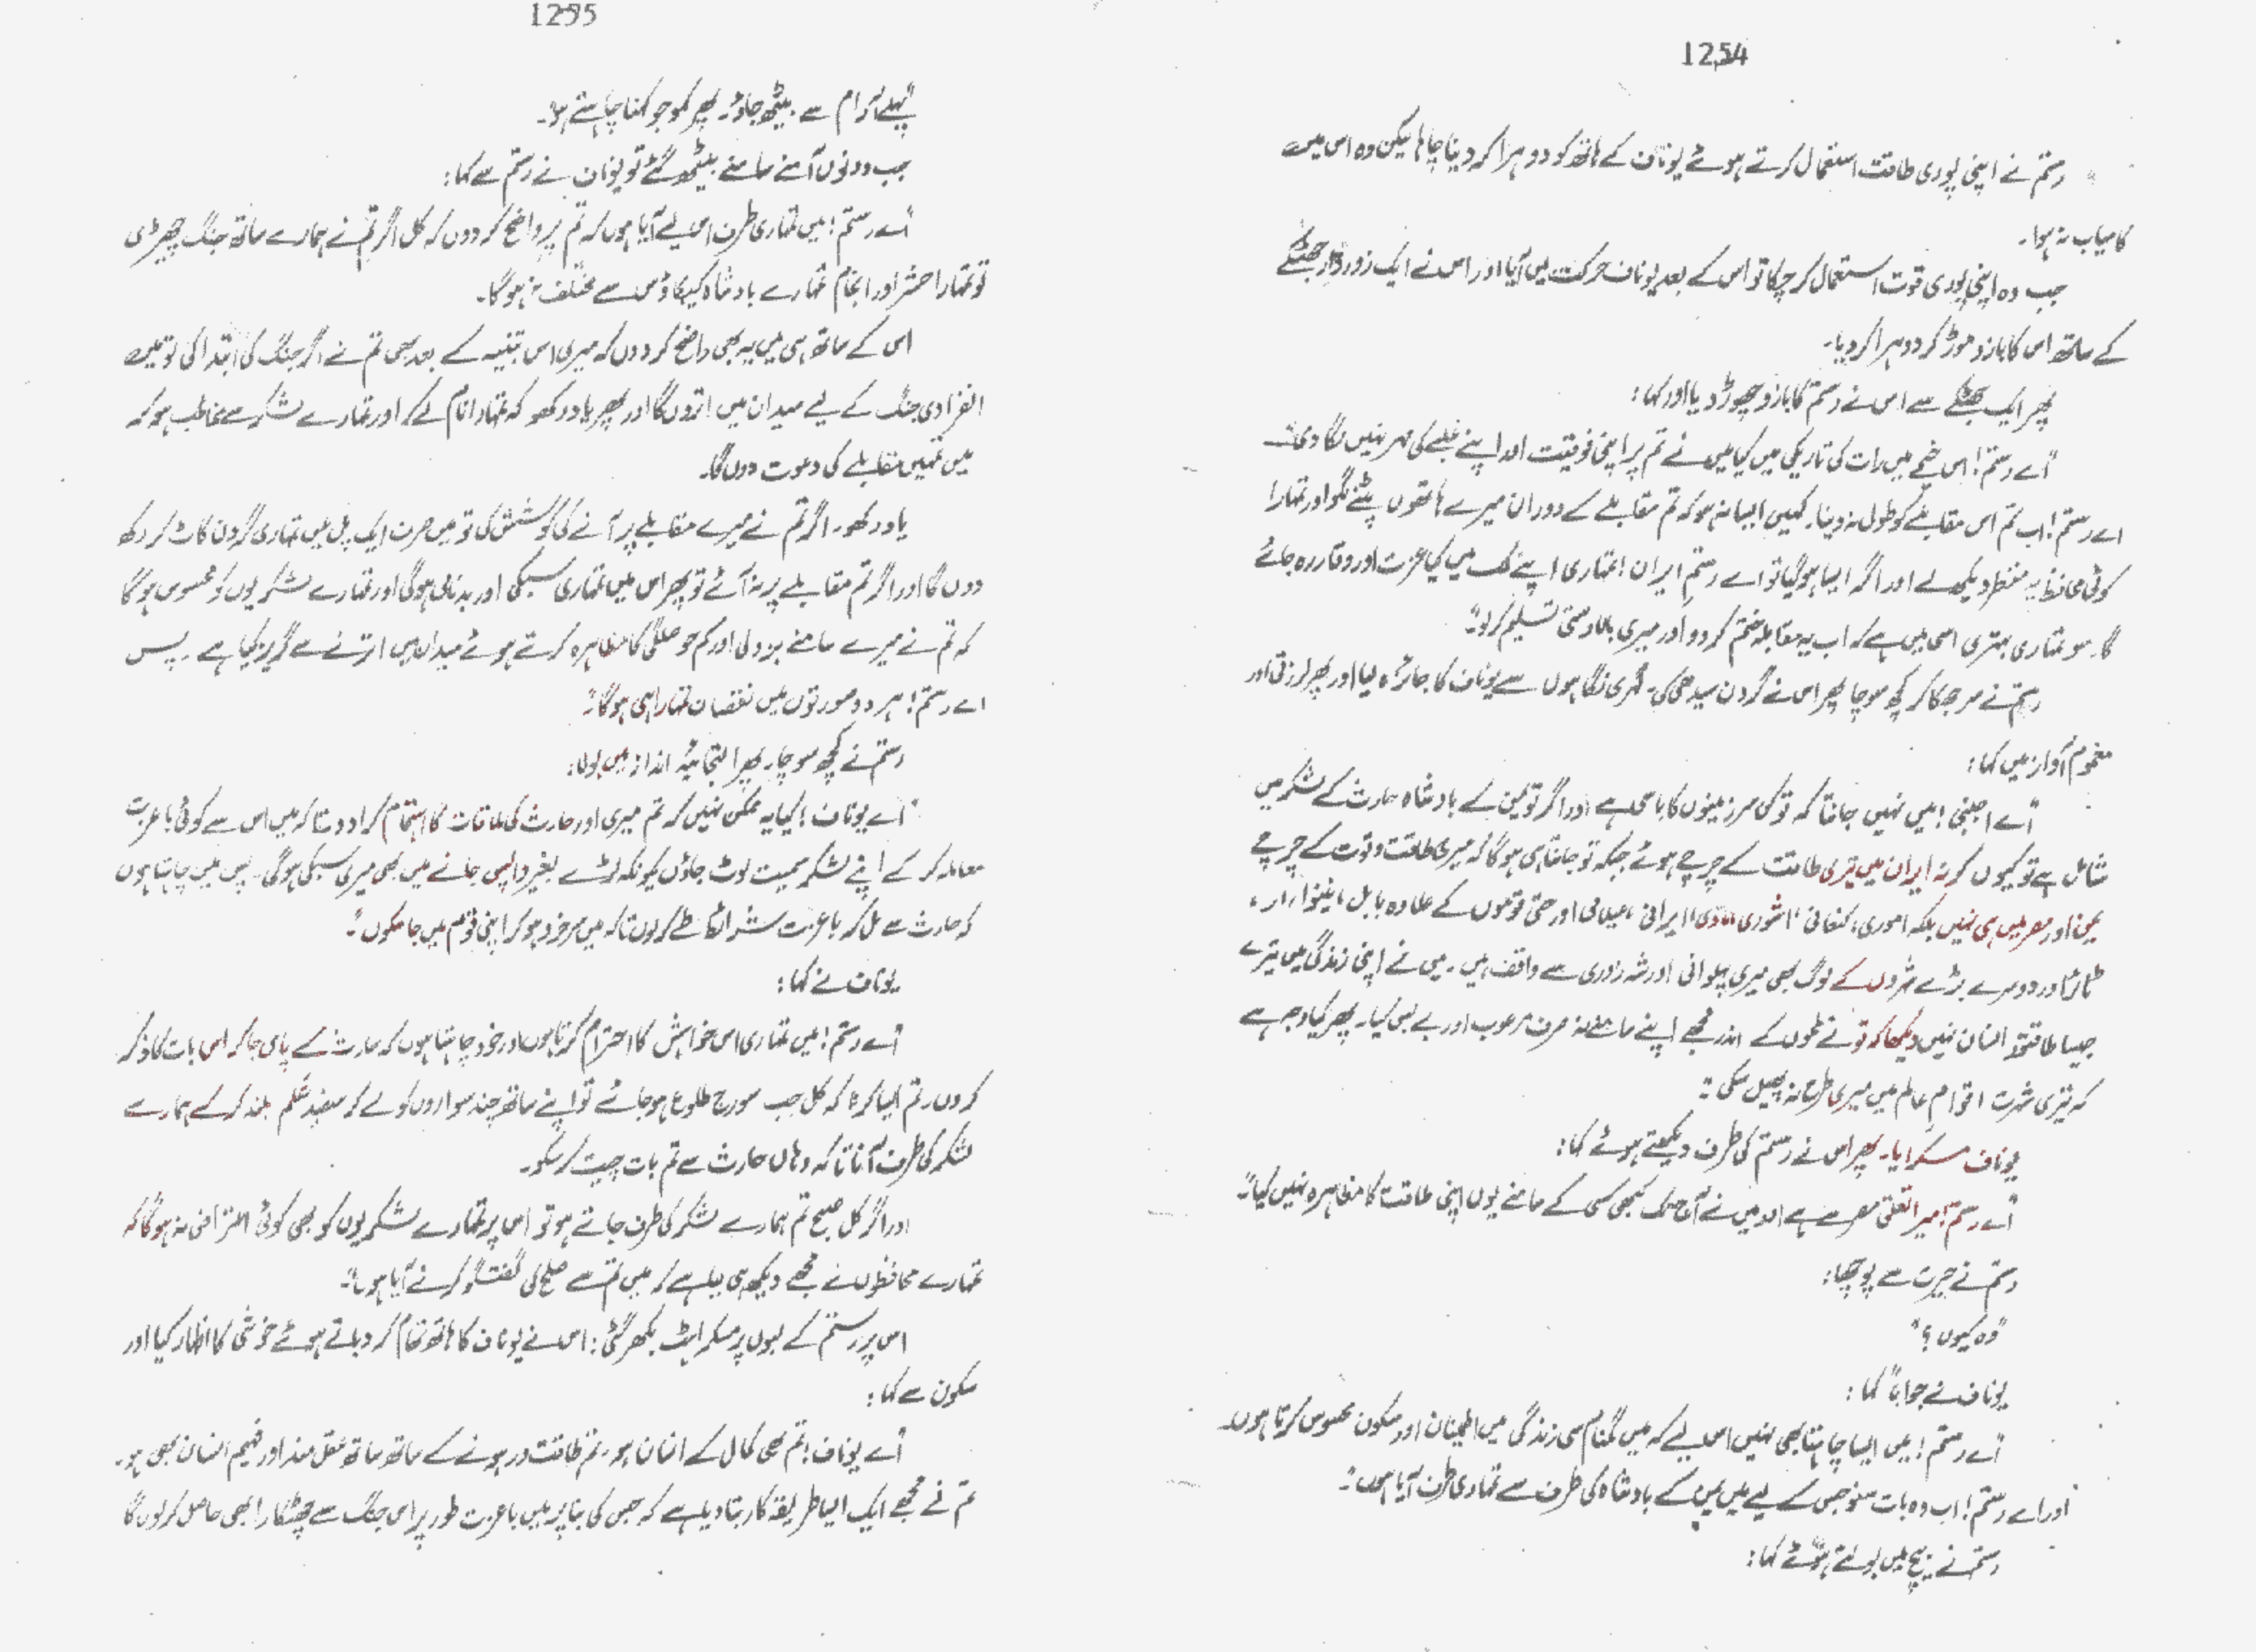 1254
رستم نے اپنی پوری طاقت استعمال کرتے ہوئے یوناف کے ہاتھ کو دوہرا کر دینا چاہا لیکن وہ اس میں
کامیاب نہ ہوا۔
جب وہ اپنی پوری قوت استعمال کر چکا تو اس کے بعد یوناف حرکت میں آیا اور اس نے ایک زوردار جھٹکے
کے ساتھ اس کا بازو موڑ کر دوہرا کر دیا۔
پھر ایک جھٹکے سے اس نے رستم کا بازو چھوڑ دیا اور کہا:
"اے رستم! اس خیمے میں رات کی تاریکی میں کیا میں نے تم پر اپنی فوقیت اور اپنے غلبے کی مہر نہیں لگا دی۔
اے رستم! اب تم اس مقابلے کو طول نہ دینا۔ کہیں ایسا نہ ہو کہ تم مقابلے کے دوران میرے ہاتھوں پٹنے لگو اور تمہارا
کوئی محافظ یہ منظر دیکھ لے اور اگر ایسا ہو گیا تو اے رستمِ ایران! تمہاری اپنے ملک میں کیا عزت اور وقار رہ جائے
گا۔ سو تمہاری بہتری اسی میں ہے کہ اب یہ مقابلہ ختم کر دو اور میری بالادستی تسلیم کر لو۔"
رستم نے سر جھکا کر کچھ سوچا پھر اس نے گردن سیدھی کی۔ گہری نگاہوں سے یوناف کا جائزہ لیا اور پھر لرزتی اور
مغموم آواز میں کہا:
"اے اجنبی! میں نہیں جانتا کہ تو کن سرزمینوں کا باسی ہے اور اگر تو یمن کے بادشاہ حارث کے لشکر میں
شامل ہے تو کیوں کر نہ ایران میں تیری طاقت کے چرچے ہوئے جبکہ تو جانتا ہی ہو گا کہ میری طاقت و قوت کے چرچے
یمن اور مصر میں ہی نہیں بلکہ اموری، کنعانی، اشوری، مادی، ایرانی، عیلامی اور حتی قوموں کے علاوہ بابل، نینوا، ار،
طائر اور دوسرے بڑے شہروں کے لوگ بھی میری پہلوانی اور شہ زوری سے واقف ہیں۔ میں نے اپنی زندگی میں تیرے
جیسا طاقتور انسان نہیں دیکھا کہ تو نے لمحوں کے اندر مجھے اپنے سامنے نہ صرف مرعوب اور بے بس کیا۔ پھر کیا وجہ ہے
کہ تیری شہرت اقوامِ عالم میں میری طرح نہ پھیل سکی؟"
یوناف مسکرایا۔ پھر اس نے رستم کی طرف دیکھتے ہوئے کہا:
"اے رستم! میرا تعلق مصر سے ہے اور میں نے آج تک کبھی کسی کے سامنے یوں اپنی طاقت کا مظاہرہ نہیں کیا۔"
رستم نے حیرت سے پوچھا:
"وہ کیوں؟"
یوناف نے جواباً کہا:
"اے رستم! میں ایسا چاہتا بھی نہیں اس لیے کہ میں گمنام سی زندگی میں اطمینان اور سکون محسوس کرتا ہوں۔
اور اے رستم! اب وہ بات سنو جس کے لیے میں یمن کے بادشاہ کی طرف سے تمہاری طرف آیا ہوں۔"
رستم نے بیچ میں بولتے ہوئے کہا:
1255
"پہلے آرام سے بیٹھ جاؤ۔ پھر کہو جو کہنا چاہتے ہو۔
جب دونوں آمنے سامنے بیٹھ گئے تو یوناف نے رستم سے کہا:
"اے رستم! میں تمہاری طرف اس لیے آیا ہوں کہ تم پر واضح کر دوں کہ کل اگر تم نے ہمارے ساتھ جنگ چھیڑی
تو تمہارا حشر اور انجام تمہارے بادشاہ کیکاؤس سے مختلف نہ ہو گا۔
اس کے ساتھ ہی میں یہ بھی واضح کر دوں کہ میری اس تنبیہ کے بعد بھی تم نے اگر جنگ کی ابتدا کی تو میں
انفرادی جنگ کے لیے میدان میں اتروں گا اور پھر یاد رکھو کہ تمہارا نام لے کر اور تمہارے لشکر سے مخاطب ہو کر
میں تمہیں مقابلے کی دعوت دوں گا۔
یاد رکھو۔ اگر تم نے میرے مقابلے پر آنے کی کوشش کی تو میں صرف ایک پل میں تمہاری گردن کاٹ کر رکھ
دوں گا اور اگر تم مقابلے پر نہ آئے تو پھر اس میں تمہاری سبکی اور بدنامی ہو گی اور تمہارے لشکریوں کو محسوس ہو گا
کہ تم نے میرے سامنے بزدلی اور کم حوصلگی کا مظاہرہ کرتے ہوئے میدان میں اترنے سے گریز کیا ہے۔ پس
اے رستم! ہر دو صورتوں میں نقصان تمہارا ہی ہو گا۔"
رستم نے کچھ سوچا۔ پھر التجائیہ انداز میں بولا:
"اے یوناف! کیا یہ ممکن نہیں کہ تم میری اور حارث کی ملاقات کا اہتمام کرا دو تاکہ میں اس سے کوئی باعزت
معاملہ کر کے اپنے لشکر سمیت لوٹ جاؤں کیونکہ لڑے بغیر واپس جانے میں بھی میری سبکی ہو گی۔ پس میں چاہتا ہوں
کہ حارث سے مل کر باعزت شرائط طے کر لوں تاکہ میں سرخرو ہو کر اپنی قوم میں جا سکوں۔"
یوناف نے کہا:
"اے رستم! میں تمہاری اس خواہش کا احترام کرتا ہوں اور خود چاہتا ہوں کہ حارث کے پاس جا کر اس بات کا ذکر
کروں۔ تم ایسا کرنا کہ کل جب سورج طلوع ہو جائے تو اپنے ساتھ چند سواروں کو لے کر سفید علم بلند کر کے ہمارے
لشکر کی طرف آنا تاکہ وہاں حارث سے تم بات چیت کر سکو۔
اور اگر کل صبح تم ہمارے لشکر کی طرف جاتے ہو تو اس پر تمہارے لشکریوں کو بھی کوئی اعتراض نہ ہو گا کہ
تمہارے محافظوں نے مجھے دیکھ ہی لیا ہے کہ میں تم سے صلح کی گفتگو کرنے آیا ہوں۔"
اس پر رستم کے لبوں پر مسکراہٹ بکھر گئی: اس نے یوناف کا ہاتھ تھام کر دباتے ہوئے خوشی کا اظہار کیا اور
سکون سے کہا:
"اے یوناف! تم بھی کمال کے انسان ہو۔ تم طاقت ور ہونے کے ساتھ ساتھ عقل مند اور فہیم انسان بھی ہو۔
تم نے مجھے ایک ایسا طریقۂ کار بتا دیا ہے کہ جس کی بنا پر میں باعزت طور پر اس جنگ سے چھٹکارا بھی حاصل کر لوں گا